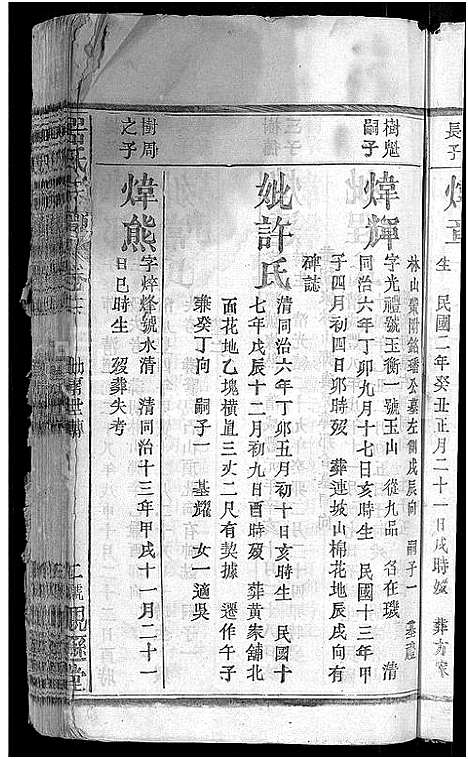 長子
生 民國二年癸丑正月二十一日戌時歿 葬方家
林山 附銘 公墓左側戌辰向 嗣子一 基
樹魁嗣子
煒輝
字光禮號玉衡一號玉山 從九品 名在璣 清
同治六年丁卯九月十七日亥時生 民國十三年甲
子四月初四日卯時歿 葬連坡山棉花地辰戌向有
碑誌
妣許氏
清同治六年丁卯五月初十日亥時生 民國十
七年戊辰十二月初九日酉時歿 葬黃家舖北
面花地乙塊橫直三丈二尺有契據 遷作午子
兼癸丁向 嗣子一 基耀 女一適吳
樹周之子
煒熊
字焠烽號水清 清同治十三年甲戌十一月二十一
日巳時生 歿葬失考
氏宗譜 卷十